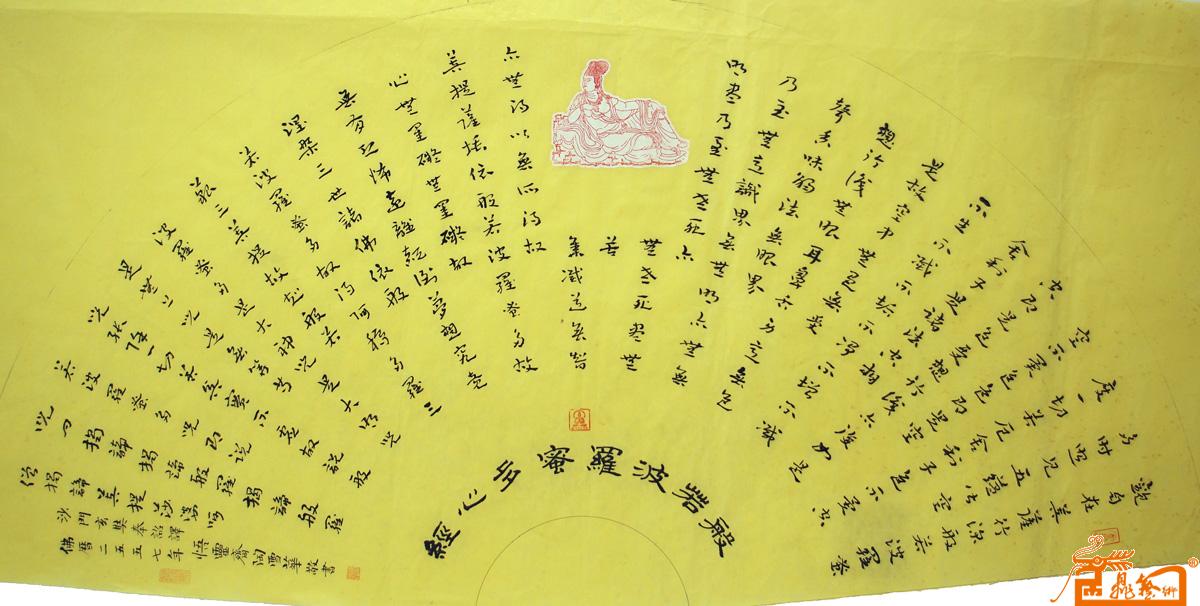 觀自在菩薩行深般若波羅蜜
多時照見五蘊皆空
度一切苦厄舍利子色不異
空空不異色色即是空
空即是色受想行識亦復如是
舍利子是諸法空相
不生不滅不垢不淨不增不減
是故空中無色無受
想行識無眼耳鼻舌身意無色
聲香味觸法無眼界
乃至無意識界無無明亦無無
明盡乃至無老死亦
無老死盡無
苦
集滅道無智
亦無得以無所得故
菩提薩埵依般若波羅蜜多故
心無罣礙無罣礙故
無有恐怖遠離顛倒夢想究竟
涅槃三世諸佛依般
若波羅蜜多故得阿耨多羅三
藐三菩提故知般若
波羅蜜多是大神咒是大明咒
是無上咒是無等等
咒能除一切苦真實不虛故說般
若波羅蜜多咒即說
咒曰揭諦揭諦般羅揭諦般羅
僧揭諦菩提莎婆呵
沙門玄奘奉詔譯
佛曆二五五七年悟靈齋陶雪華敬書
般若波羅蜜多心經